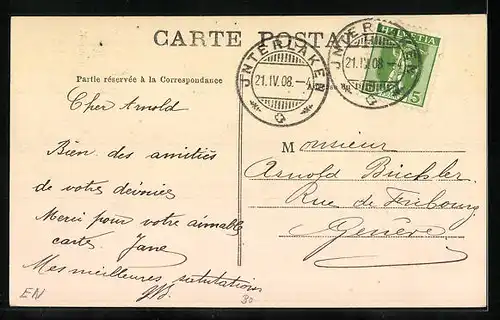 CARTE POSTALE
Partie réservée à la Correspondance
JNTERLAKEN
21.IV.08.–4
JNTERLAKEN
21.IV.08.–4
HELVETIA
5
Cher Arnold
Bien des amitiés
de votre
Merci pour votre aimable
carte. Jane
Mes meilleures salutations
Monsieur
Arnold Büchler
Rue de Fribourg
Genève
EN
30